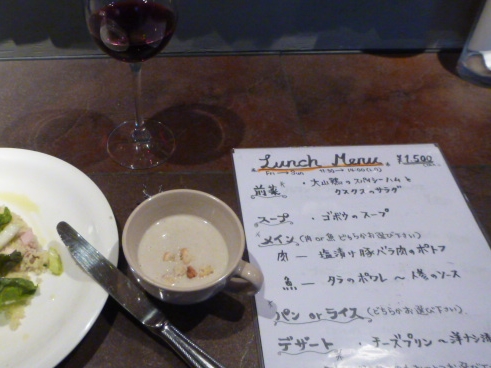 Lunch Menu ¥1,500
Fri → Sun 11:30 → 14:00 (L.O)
前菜 ・大山鶏のスパイシーハムと
クスクスのサラダ
スープ ・ゴボウのスープ
メイン (肉 or 魚 どちらかお選び下さい)
肉 ― 塩漬け豚バラ肉のポトフ
魚 ― タラのポワレ ～人参のソース
パン or ライス (どちらかお選び下さい)
デザート ・チーズプリン ～洋ナシ